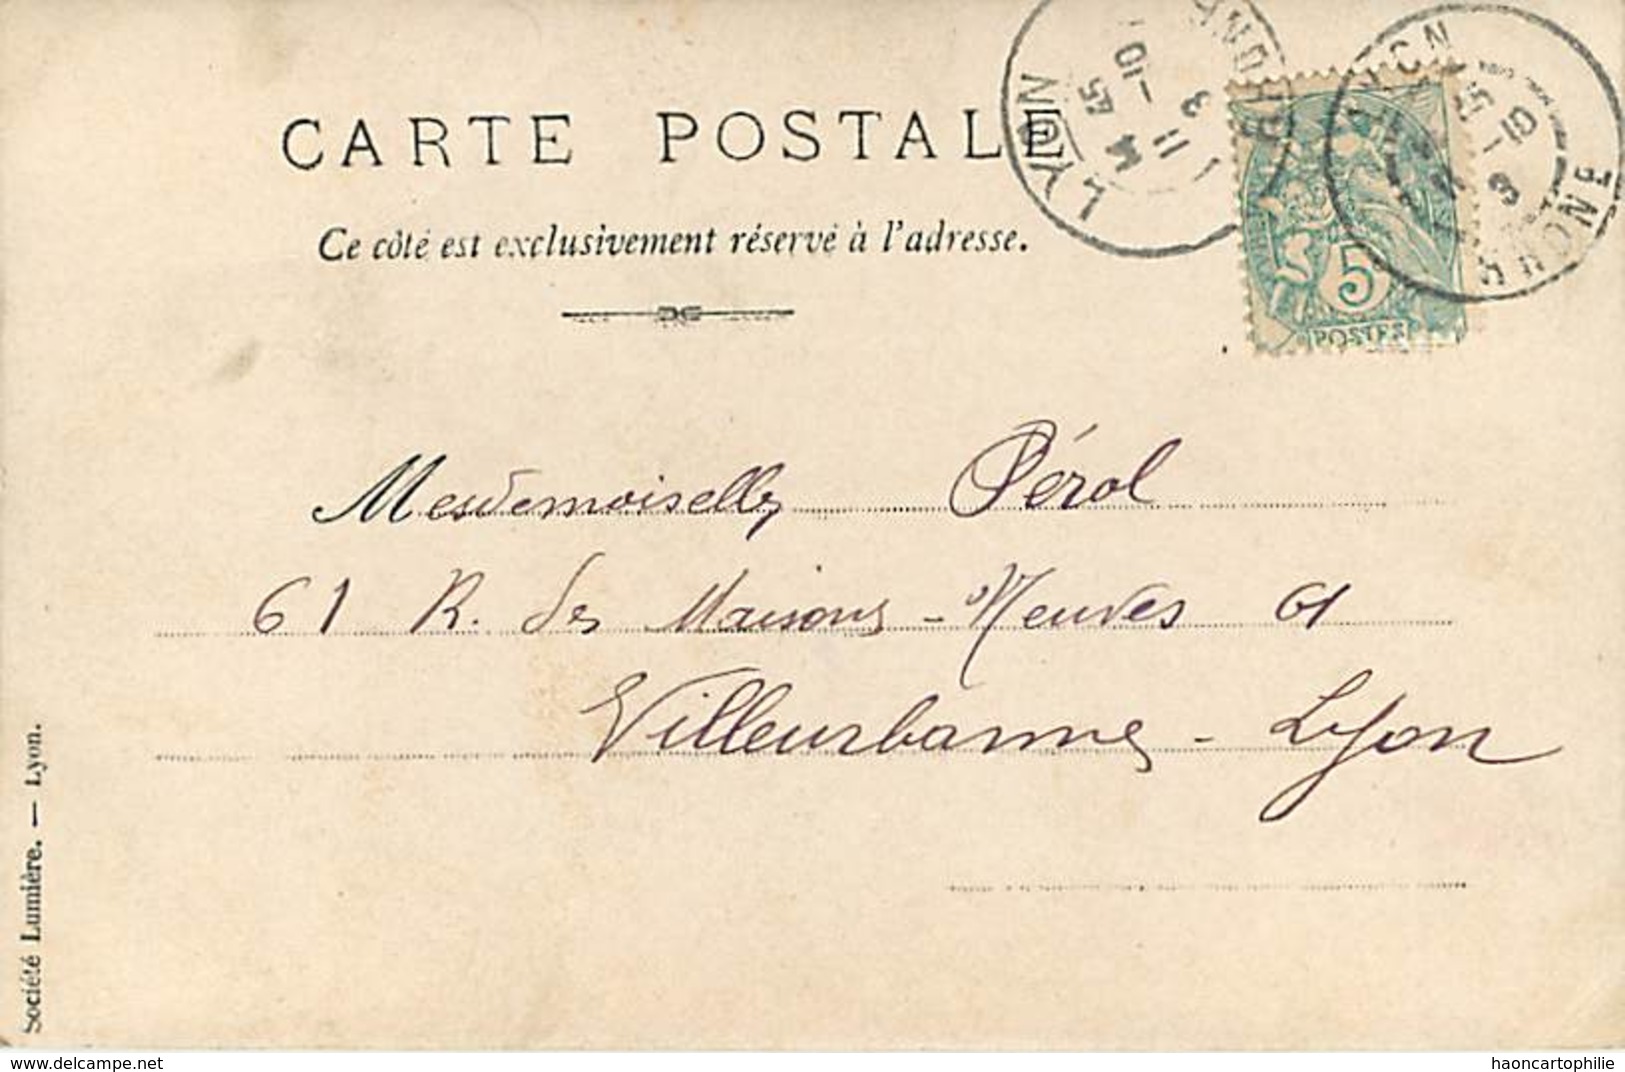 CARTE POSTALE
Ce côté est exclusivement réservé à l'adresse.
LYON
RHONE
5
POSTES
Mesdemoiselles Pérol
61 R. des Maisons-Neuves 61
Villeurbanne - Lyon
Société Lumière. — Lyon.
www.delcampe.net
haoncartophilie